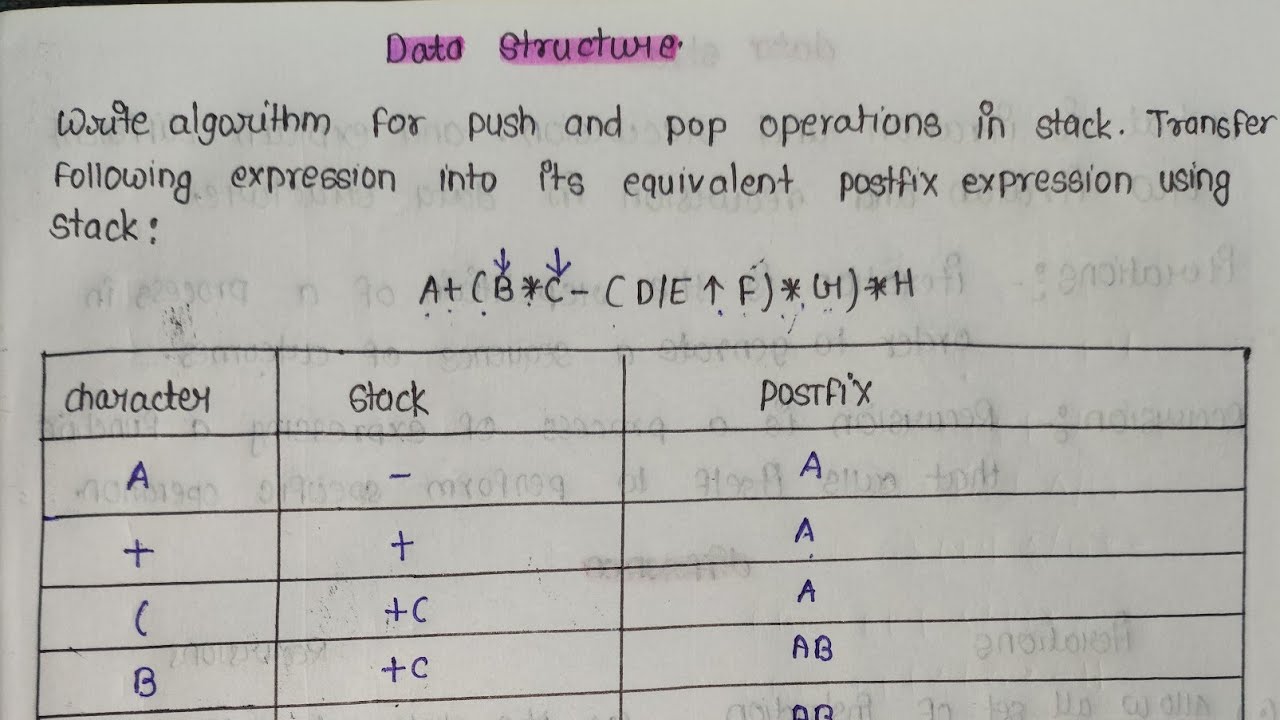 Data Structure.
Write algorithm for push and pop operations in stack. Transfer
following expression into its equivalent postfix expression using
stack:
A+(B*C-(D/E↑F)*G)*H
character stack POSTfix
A - A
+ + A
( +( A
B +( AB
AB